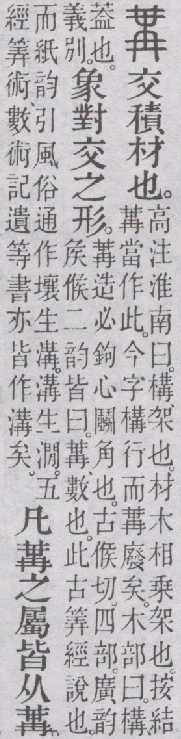 冓交積材也。高注淮南曰。構、架也。材木相乘架也。按結
冓當作此。今字構行而冓廢矣。木部曰。構、
葢也。
義別。
象對交之形。冓造必鉤心鬬角也。古候切。四部。廣韵
矦候二韵皆曰。冓、數也。此古筭經說也。
而紙韵引風俗通作壤生溝。溝生澗。五
經筭術、數術記遺等書亦皆作溝矣。
凡冓之屬皆从冓。